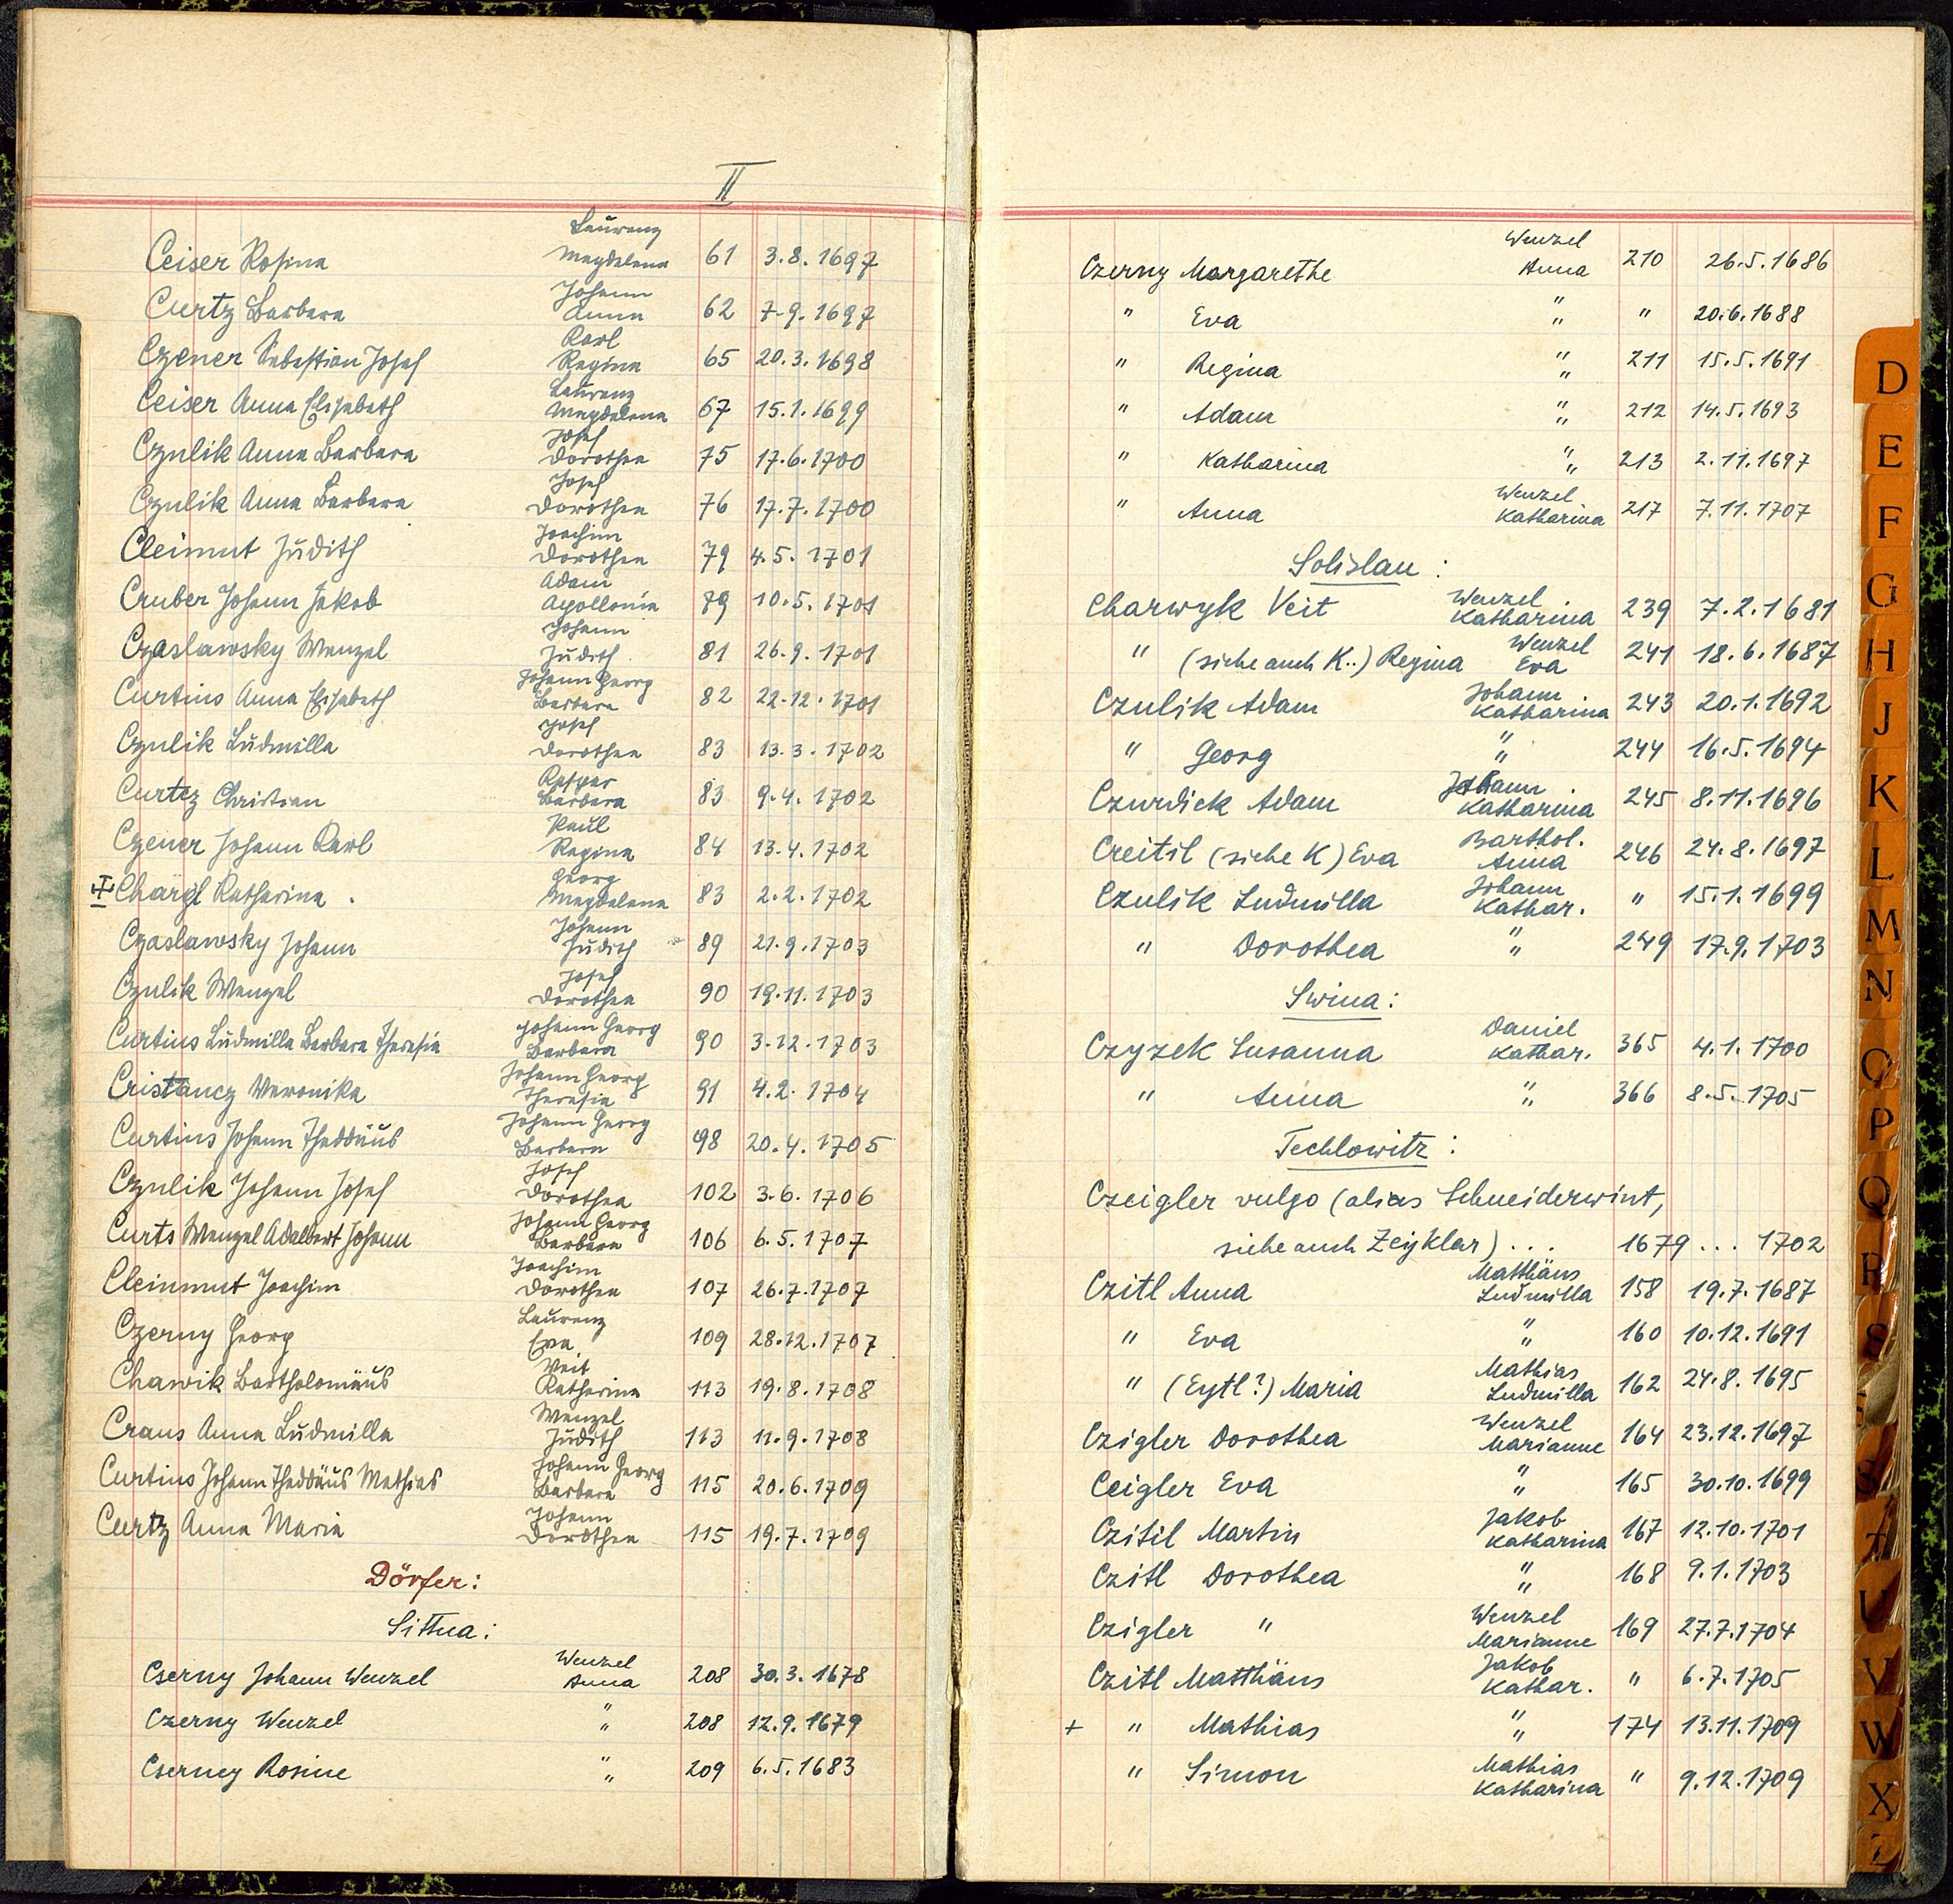 II
Laurenz
Ceiser Rosina Magdalena 61 3.8.1697
Johann
Curtz Barbara Anna 62 7.9.1697
Karl
Czener Sebastian Josef Regina 65 20.3.1698
Laurenz
Ceiser Anna Elisabeth Magdalena 67 15.1.1699
Josef
Czulik Anna Barbara Dorothea 75 17.6.1700
Josef
Czulik Anna Barbara Dorothea 76 17.7.1700
Joachim
Cleimut Judith Dorothea 79 4.5.1701
Adam
Cruber Johann Jakob Apollonia 79 10.5.1701
Johann
Czaslawsky Wenzel Judith 81 26.9.1701
Johann Georg
Curtius Anna Elisabeth Barbara 82 22.12.1701
Josef
Czulik Ludmilla Dorothea 83 13.3.1702
Kaspar
Curtcz Christian Barbara 83 9.4.1702
Paul
Czener Johann Karl Regina 84 13.4.1702
Georg
Chargl Katharina . Magdalena 83 2.2.1702
Johann
Czaslawsky Johann Judith 89 21.9.1703
Josef
Czulik Wenzel Dorothea 90 19.11.1703
Johann Georg
Curtius Ludmilla Barbara Theresia Barbara 90 3.12.1703
Johann Georg
Cristancz Veronika Theresia 91 4.2.1704
Johann Georg
Curtius Johann Thaddäus Barbara 98 20.4.1705
Josef
Czulik Johann Josef Dorothea 102 3.6.1706
Johann Georg
Curts Wenzel Adalbert Johann Barbara 106 6.5.1707
Joachim
Cleinmut Joachim Dorothea 107 26.7.1707
Laurenz
Czerny Georg Eva 109 28.12.1707
Veit
Chawik Bartholomäus Katharina 113 19.8.1708
Wenzel
Craus Anna Ludmilla Judith 113 11.9.1708
Johann Georg
Curtius Johann Thaddäus Mathias Barbara 115 20.6.1709
Johann
Curtz Anna Maria Dorothea 115 19.7.1709
Dörfer:
Sittna:
Wenzel
Cserny Johann Wenzel Anna 208 30.3.1678
"
Czerny Wenzel " 208 12.9.1679
"
Cserney Rosine " 209 6.5.1683
Wenzel
Czerny Margarethe Anna 210 26.5.1686
"
" Eva " " 20.6.1688
"
" Regina " 211 15.5.1691
"
" Adam " 212 14.5.1693
"
" Katharina " 213 2.11.1697
Wenzel
" Anna Katharina 217 7.11.1707
Solislau:
Wenzel
Charwyk Veit Katharina 239 7.2.1681
Wenzel
" (siehe auch K..) Regina Eva 241 18.6.1687
Johann
Czulik Adam Katharina 243 20.1.1692
"
" Georg " 244 16.5.1694
Johann
Czurdick Adam Katharina 245 8.11.1696
Barthol.
Creitil (siehe K) Eva Anna 246 24.8.1697
Johann
Czulik Ludmilla Kathar. " 15.1.1699
"
" Dorothea " 249 17.9.1703
Swina:
Daniel
Czyzek Susanna Kathar. 365 4.1.1700
" Anna " 366 8.5.1705
Techlowitz:
Czeigler vulgo (alias Schneiderwirt,
siehe auch Zeyklar) ... 1679 ... 1702
Matthäus
Czitl Anna Ludmilla 158 19.7.1687
"
" Eva " 160 10.12.1691
Mathias
" (Eytl?) Maria Ludmilla 162 24.8.1695
Wenzel
Czigler Dorothea Marianne 164 23.12.1697
"
Ceigler Eva " 165 30.10.1699
Jakob
Czitil Martin Katharina 167 12.10.1701
"
Czitl Dorothea " 168 9.1.1703
Wenzel
Czigler " Marianne 169 27.7.1704
Jakob
Czitl Matthäus Kathar. " 6.7.1705
"
+ " Mathias " 174 13.11.1709
Mathias
" Simon Katharina " 9.12.1709
D
E
F
G
H
J
K
L
M
N
O
P
Q
R
S
T
U
V
W
X